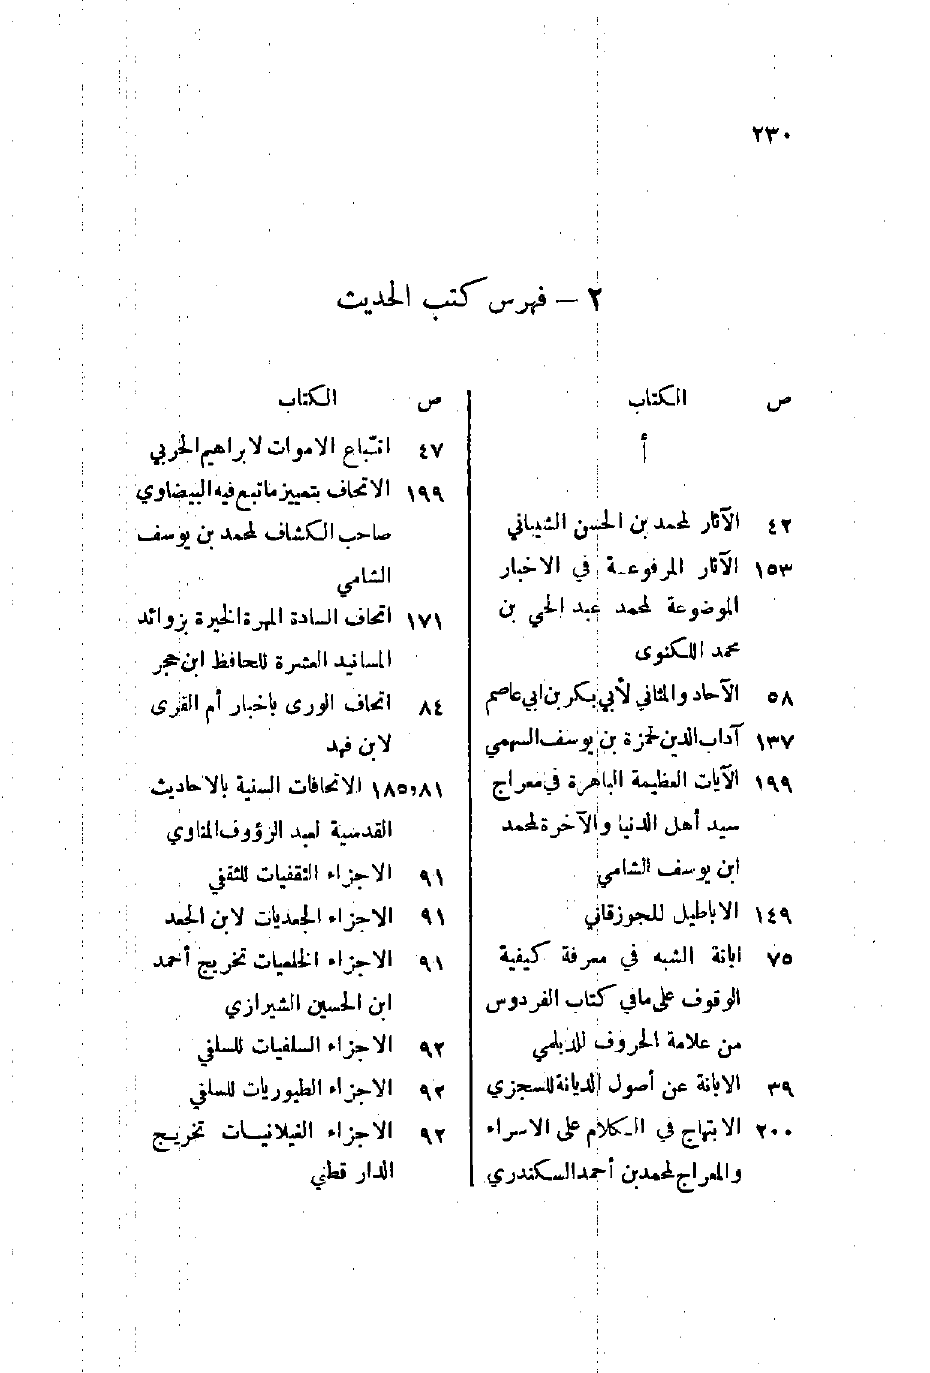 ٢٣٠
٢ - فهرس كتب الحديث
ص الكتاب
أ
٤٢ الآثار لمحمد بن الحسن الشيباني
١٥٣ الآثار المرفوعة في الاخبار
الموضوعة لمحمد عبد الحي بن
محمد اللكنوى
٥٨ الآحاد والمثاني لأبي بكر بن ابي عاصم
١٣٧ آداب الدين لحمزة بن يوسف السهمي
١٩٩ الآيات العظيمة الباهرة في معراج
سيد أهل الدنيا والآخرة لمحمد
ابن يوسف الشامي
١٤٩ الاباطيل للجوزقاني
٧٥ ابانة الشبه في معرفة كيفية
الوقوف على مافي كتاب الفردوس
من علامة الحروف للديلمي
٣٩ الابانة عن أصول الديانة للسجزي
٢٠٠ الابتهاج في الكلام على الاسراء
والمعراج لمحمد بن أحمد السكندري
ص الكتاب
٤٧ اتباع الاموات لابراهيم الحربي
١٩٩ الاتحاف بتمييز ماتبع فيه البيضاوي
صاحب الكشاف لمحمد بن يوسف
الشامي
١٧١ اتحاف السادة المهرة الخيرة بزوائد
المسانيد العشرة للحافظ ابن حجر
٨٤ اتحاف الورى باخبار أم القرى
لابن فهد
٨١و١٨٥ الاتحافات السنية بالاحاديث
القدسية لعبد الرؤوف المناوي
٩١ الاجزاء الثقفيات للثقفي
٩١ الاجزاء الجعديات لابن الجعد
٩١ الاجزاء الخلعيات تخريج أحمد
ابن الحسين الشيرازي
٩٢ الاجزاء السلفيات للسلفي
٩٢ الاجزاء الطيوريات للسلفي
٩٢ الاجزاء الغيلانيات تخريج
الدار قطني